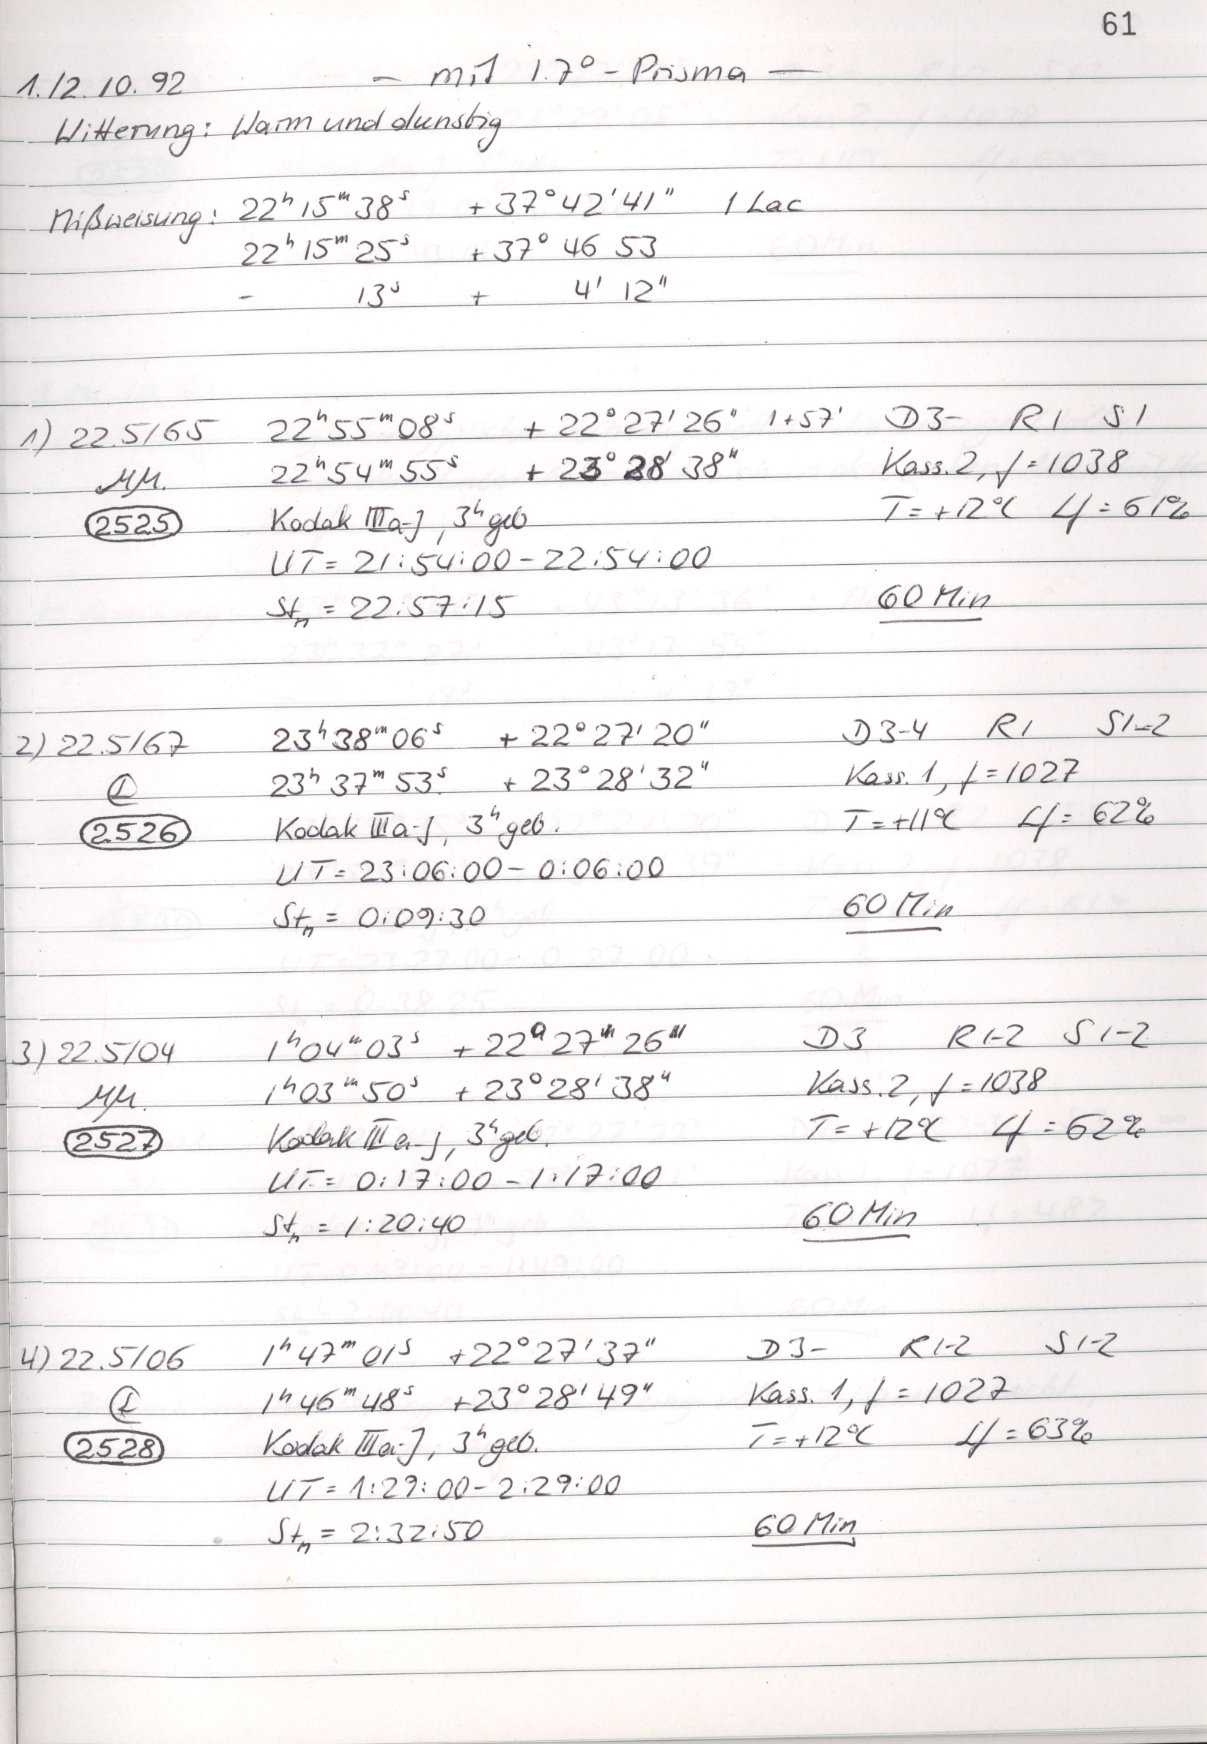 61
1./2.10.92 – mit 1.7° – Prisma —
Witterung: Warm und dunstig
Mißweisung: 22ʰ15ᵐ38ˢ +37°42'41" 1 Lac
22ʰ15ᵐ25ˢ +37° 46 53
– 13ˢ + 4' 12"
1) 22.5/65 22ʰ55ᵐ08ˢ +22°27'26" 1+57' D3- R1 S1
MM. 22ʰ54ᵐ55ˢ +23°28'38" Kass.2, f=1038
2525 Kodak IIIa-J, 3ʰ geb T=+12°C 61%
UT= 21:54:00–22:54:00
Stₙ = 22:57:15 60 Min
2) 22.5/67 23ʰ38ᵐ06ˢ +22°27'20" D3-4 R1 S1-2
23ʰ37ᵐ53ˢ +23°28'32" Kass.1, f=1027
2526 Kodak IIIa-J, 3ʰ geb. T=+11°C 62%
UT= 23:06:00–0:06:00
Stₙ = 0:09:30 60 Min
3) 22.5/04 1ʰ04ᵐ03ˢ +22°27'26" D3 R1-2 S1-2
MM. 1ʰ03ᵐ50ˢ +23°28'38" Kass.2, f=1038
2527 Kodak IIIa-J, 3ʰ geb. T=+12°C 62%
UT= 0:17:00–1:17:00
Stₙ = 1:20:40 60 Min
4) 22.5/06 1ʰ47ᵐ01ˢ +22°27'37" D3- R1-2 S1-2
1ʰ46ᵐ48ˢ +23°28'49" Kass.1, f=1027
2528 Kodak IIIa-J, 3ʰ geb. T=+12°C 63%
UT= 1:29:00–2:29:00
Stₙ = 2:32:50 60 Min